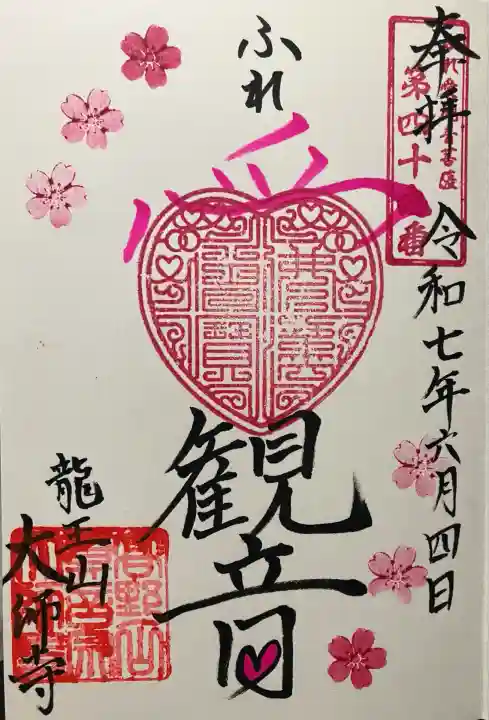 奉拝
令和七年六月四日
第四十番
ふれ
愛
観音
龍王山
大師寺
高野山